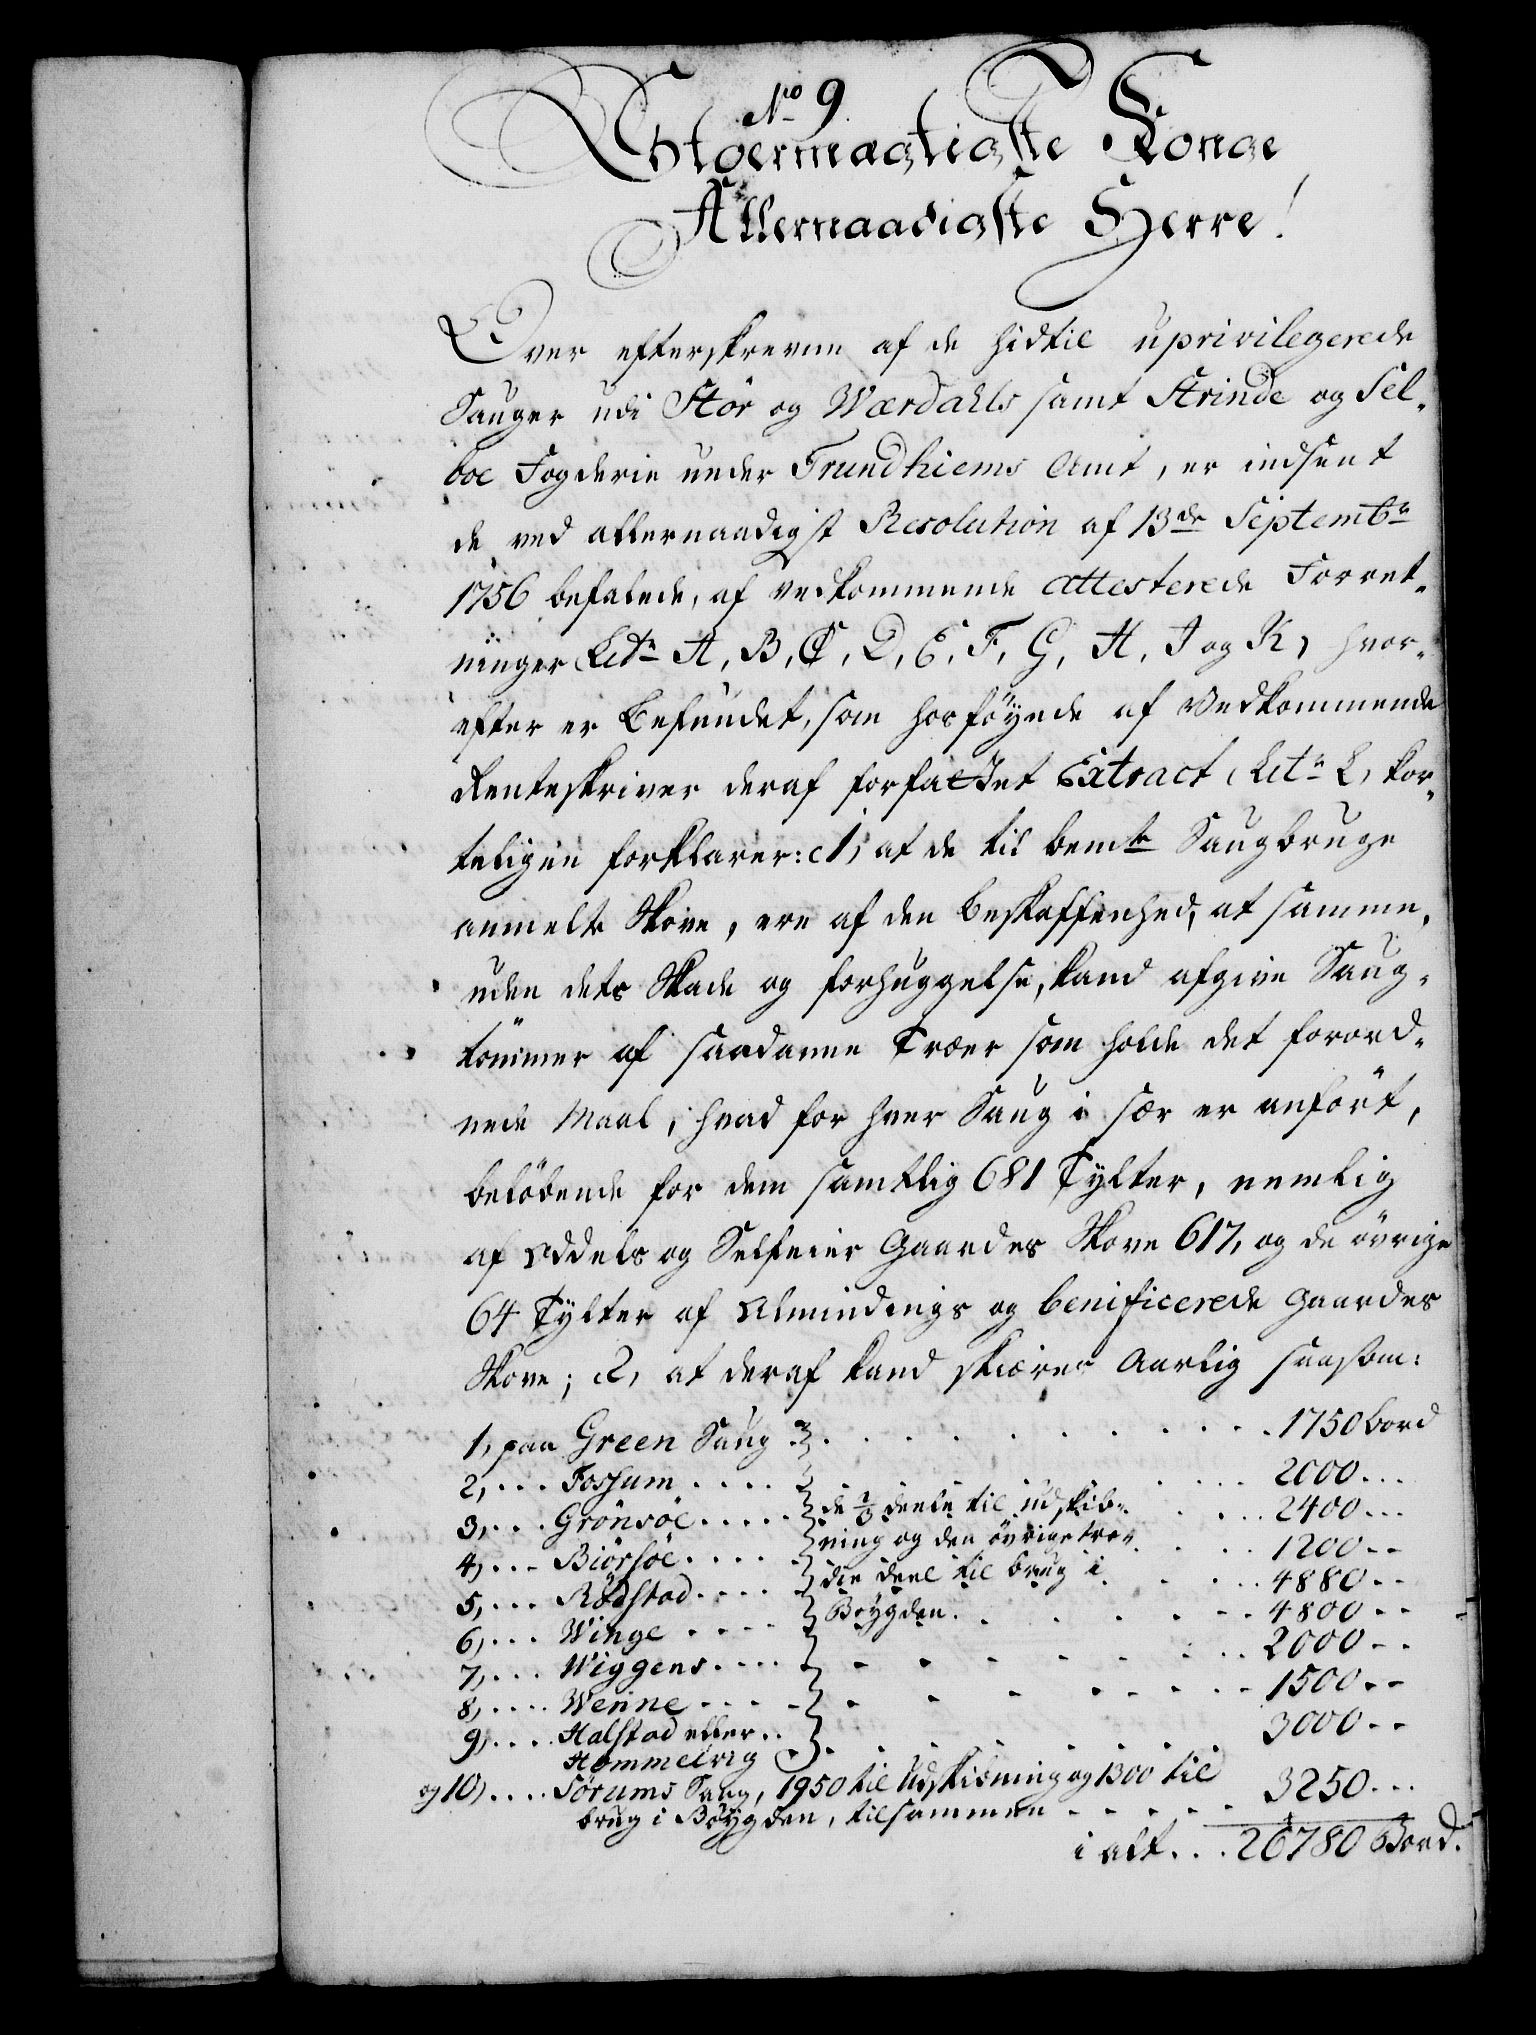 No 9.
Stoermægtigste Konge
Allernaadigste Herre!
Over efterskrevne af de hidtil uprivilegerede
Sauger udi Stör og Wærdahls samt Strinde og Sel-
boe Fogderie under Trundhiems Amt, er indsendt
de ved allernaadigst Resolution af 13de Septembr
1756 befalede, af vedkommende attesterede Forret-
ninger Litr A, B, C, D, E, F, G, H, I og K, hvor-
efter er befundet, som hosföyede af vedkommende
Renteskriver deraf forfattet Extract Litr L, kor-
teligen forklarer: 1, at de til bemte Saugbruge
anmelte Skove, ere af den beskaffenhed, at samme,
uden dets Skade og forhuggelse, kand afgive Saug-
tömmer af saadanne Træer som holde det forord-
nede Maal, hvad for hver Saug i sær er anfört,
belöbende for dem samtlig 681 Tylter, nemlig
af Oddels og Selfeier Gaardes Skove 617, og de övrige
64 Tylter af Almindings og benificerede Gaardes
Skove; 2, at deraf kand skiæres Aarlig saasom:
1, paa Green Saug . . . 1750 bord
2, . . . Fossum . . . . 2000 . . .
3, . . . Grönsöe . . . . de 2/3 deele til udskib- . . . 2400 . . .
4, . . . Biörsöe . . . . ning og den övrige tre- . . . 1200 . .
5, . . . Rödstad . . . . die deel til brug i . . . 4880 . .
6, . . . Winge . . . . Böygden . . . 4800 . .
7, . . . Wiggens . . . . 2000 . .
8, . . . . Wenne . . . . 1500 . .
9, . . . . Halstad eller . . 3000 . .
Hommelvig
og 10, . . . . Sörums Saug, 1950 til Udskibning og 1300 til
brug i Böygden, tilsammen . . . . . 3250 . . .
i alt . . . 26780 Bord.